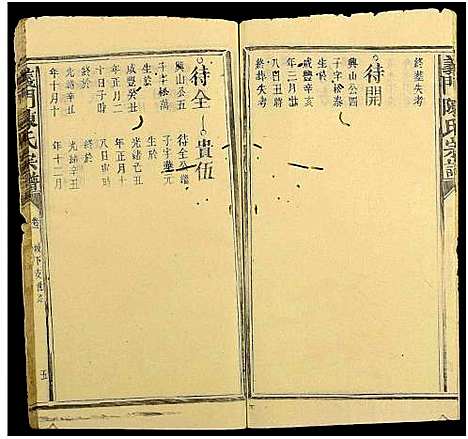 義門陳氏宗譜
終墓失考
待開
興山公四
子字松泰
生於
咸豐辛亥
年三月廿
八日丑時
終墓失考
待全
興山公五
子字松萬
生於
咸豐癸丑
年正月二
十日子時
終於
光緒辛丑
年十月十
貴伍
待全公繼
子字華元
生於
光緒己丑
年正月十
八日寅時
終於
光緒辛丑
年十二月
義門陳氏宗譜
卷
五